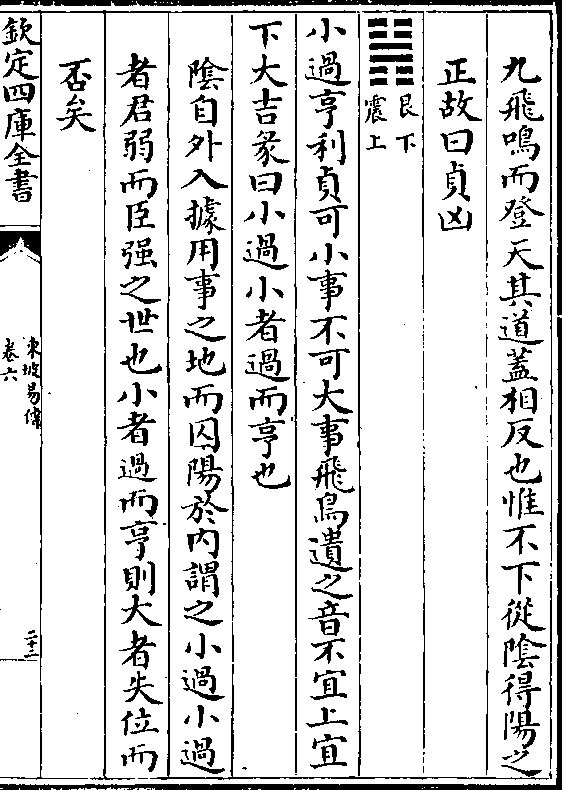 九飛鳴而登天其道蓋相反也惟不下從陰得陽之
正故曰貞凶
艮下
震上
小過亨利貞可小事不可大事飛鳥遺之音不宜上宜
下大吉彖曰小過小者過而亨也
陰自外入據用事之地而囚陽於内謂之小過小過
者君弱而臣强之世也小者過而亨則大者失位而
否矣
欽定四庫全書
東坡易傳
卷六
二十三